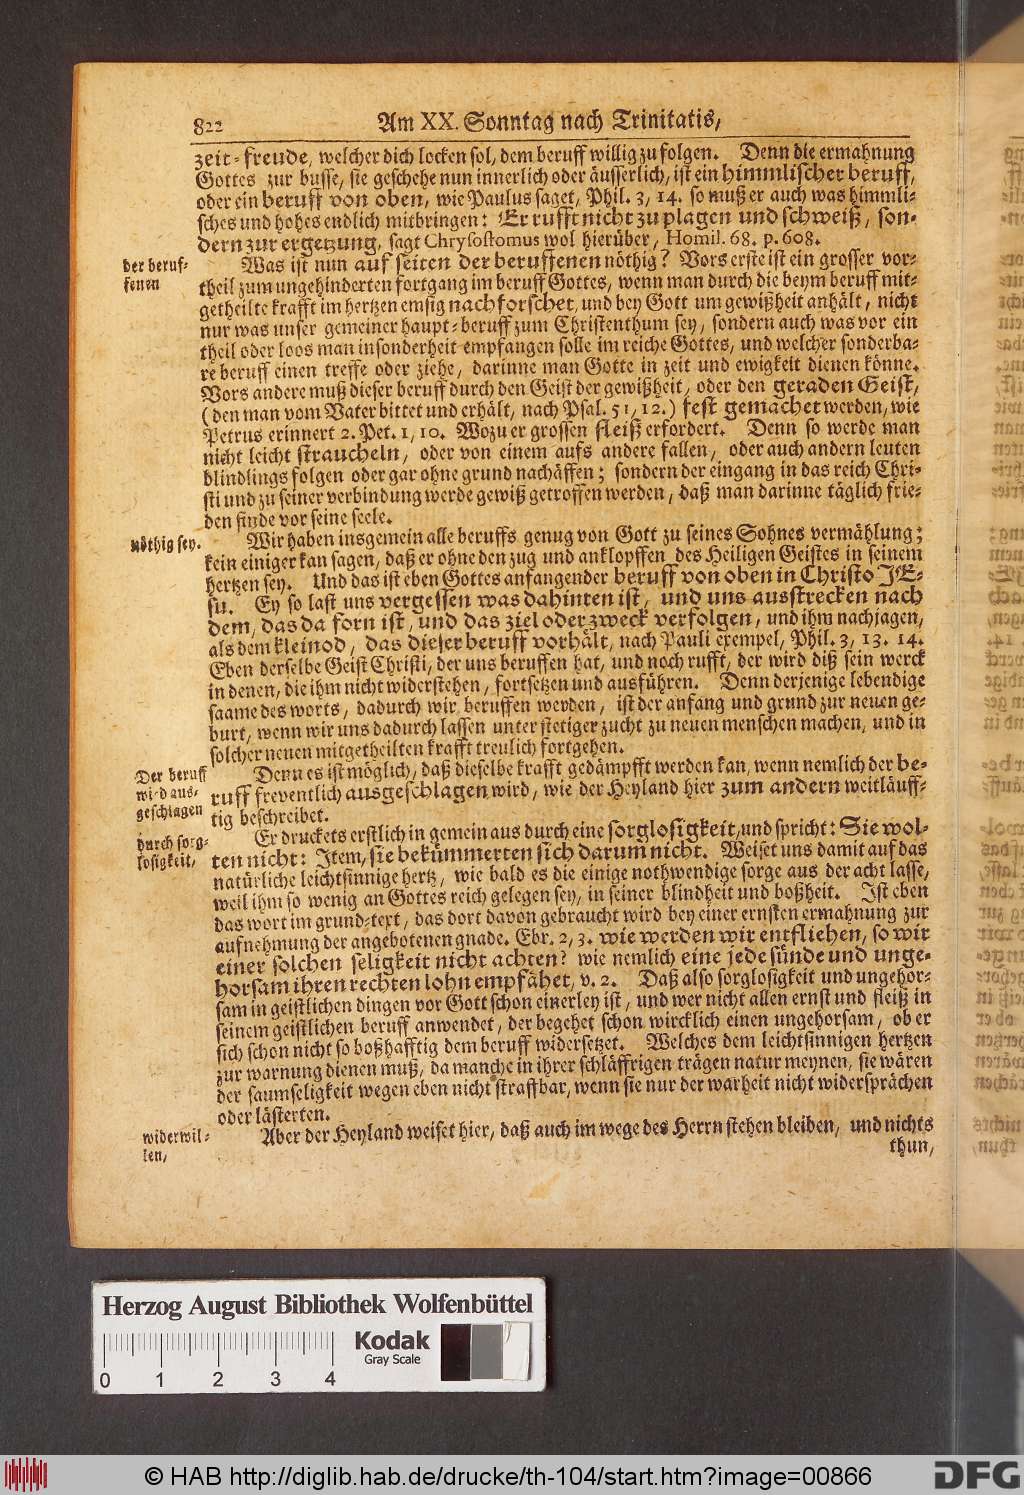 822
Am XX. Sonntag nach Trinitatis,
zeit-freude, welcher dich locken sol, dem beruff willig zu folgen. Denn die ermahnung
Gottes zur busse, sie geschehe nun innerlich oder äusserlich, ist ein himmlischer beruff,
oder ein beruff von oben, wie Paulus saget, Phil. 3, 14. so muß er auch was himmli-
sches und hohes endlich mitbringen: Er rufft nicht zu plagen und schweiß, son-
dern zur ergetzung, sagt Chrysostomus wol hierüber, Homil. 68. p. 608.
der beruf-
fenen
Was ist nun auf seiten der beruffenen nöthig? Vors erste ist ein grosser vor-
theil zum ungehinderten fortgang im beruff Gottes, wenn man durch die beym beruff mit-
getheilte krafft im hertzen emsig nachforschet, und bey Gott um gewißheit anhält, nicht
nur was unser gemeiner haupt-beruff zum Christenthum sey, sondern auch was vor ein
theil oder loos man insonderheit empfangen solle im reiche Gottes, und welcher sonderba-
re beruff einen treffe oder ziehe, darinne man Gotte in zeit und ewigkeit dienen könne.
Vors andere muß dieser beruff durch den Geist der gewißheit, oder den geraden Geist,
(den man vom Vater bittet und erhält, nach Psal. 51, 12.) fest gemachet werden, wie
Petrus erinnert 2. Pet. 1, 10. Wozu er grossen fleiß erfordert. Denn so werde man
nicht leicht straucheln, oder von einem aufs andere fallen, oder auch andern leuten
blindlings folgen oder gar ohne grund nachäffen; sondern der eingang in das reich Chri-
sti und zu seiner verbindung werde gewiß getroffen werden, daß man darinne täglich frie-
den finde vor seine seele.
nöthig sey.
Wir haben insgemein alle beruffs genug von Gott zu seines Sohnes vermählung;
kein einiger kan sagen, daß er ohne den zug und anklopffen des Heiligen Geistes in seinem
hertzen sey. Und das ist eben Gottes anfangender beruff von oben in Christo JE-
su. Ey so last uns vergessen was dahinten ist, und uns ausstrecken nach
dem, das da forn ist, und das ziel oder zweck verfolgen, und ihm nachjagen,
als dem kleinod, das dieser beruff vorhält, nach Pauli exempel, Phil. 3, 13. 14.
Eben derselbe Geist Christi, der uns beruffen hat, und noch rufft, der wird diß sein werck
in denen, die ihm nicht widerstehen, fortsetzen und ausführen. Denn derjenige lebendige
saame des worts, dadurch wir beruffen werden, ist der anfang und grund zur neuen ge-
burt, wenn wir uns dadurch lassen unter stetiger zucht zu neuen menschen machen, und in
solcher neuen mitgetheilten krafft treulich fortgehen.
Der beruff
wird aus-
geschlagen
Denn es ist möglich, daß dieselbe krafft gedämpfft werden kan, wenn nemlich der be-
ruff freventlich ausgeschlagen wird, wie der Heyland hier zum andern weitläuff-
tig beschreibet.
durch sorg-
losigkeit,
Er druckets erstlich in gemein aus durch eine sorglosigkeit, und spricht: Sie wol-
ten nicht: Item, sie bekümmerten sich darum nicht. Weiset uns damit auf das
natürliche leichtsinnige hertz, wie bald es die einige nothwendige sorge aus der acht lasse,
weil ihm so wenig an Gottes reich gelegen sey, in seiner blindheit und boßheit. Ist eben
das wort im grund-text, das dort davon gebraucht wird bey einer ernsten ermahnung zur
aufnehmung der angebotenen gnade. Ebr. 2, 3. wie werden wir entfliehen, so wir
einer solchen seligkeit nicht achten? wie nemlich eine jede sünde und unge-
horsam ihren rechten lohn empfähet, v. 2. Daß also sorglosigkeit und ungehor-
sam in geistlichen dingen vor Gott schon einerley ist, und wer nicht allen ernst und fleiß in
seinem geistlichen beruff anwendet, der begehet schon wircklich einen ungehorsam, ob er
sich schon nicht so boßhafftig dem beruff widersetzet. Welches dem leichtsinnigen hertzen
zur warnung dienen muß, da manche in ihrer schläffrigen trägen natur meynen, sie wären
der saumseligkeit wegen eben nicht straffbar, wenn sie nur der warheit nicht widersprächen
oder lästerten.
widerwil-
len,
Aber der Heyland weiset hier, daß auch im wege des Herrn stehen bleiben, und nichts
thun,
Herzog August Bibliothek Wolfenbüttel
Kodak
Gray Scale
0 1 2 3 4
© HAB http://diglib.hab.de/drucke/th-104/start.htm?image=00866
DFG